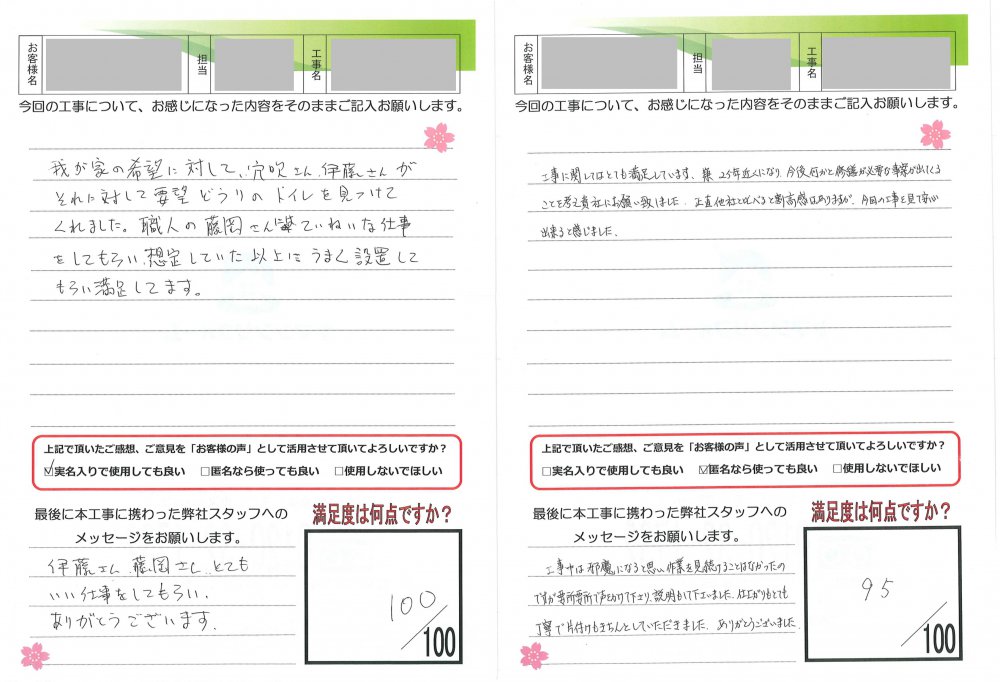 お客様名
担当
工事名
今回の工事について、お感じになった内容をそのままご記入お願いします。
我が家の希望に対して、穴吹さん、伊藤さんが
それに対して要望どうりのトイレを見つけて
くれました。職人の藤岡さんにていねいな仕事
をしてもらい、想定していた以上にうまく設置して
もらい満足してます。
上記で頂いたご感想、ご意見を「お客様の声」として活用させて頂いてよろしいですか?
☑実名入りで使用しても良い □匿名なら使っても良い □使用しないでほしい
最後に本工事に携わった弊社スタッフへの
メッセージをお願いします。
伊藤さん、藤岡さん、とても
いい仕事をしてもらい、
ありがとうございます。
満足度は何点ですか?
100
/100
お客様名
担当
工事名
今回の工事について、お感じになった内容をそのままご記入お願いします。
工事に関してはとても満足しています。築25年近くになり、今後何かと修繕が必要な事案が出てくる
ことを考え貴社にお願い致しました。正直他社と比べると割高感はありますが、今回の工事を見て安心
出来ると感じました。
上記で頂いたご感想、ご意見を「お客様の声」として活用させて頂いてよろしいですか?
□実名入りで使用しても良い ☑匿名なら使っても良い □使用しないでほしい
最後に本工事に携わった弊社スタッフへの
メッセージをお願いします。
工事中は邪魔になると思い作業を見続けることはなかったの
ですが要所要所で声をかけて下さり、説明もして下さいました。仕上がりもとても
丁寧で片付けもきちんとしていただきました。ありがとうございました。
満足度は何点ですか?
95
/100